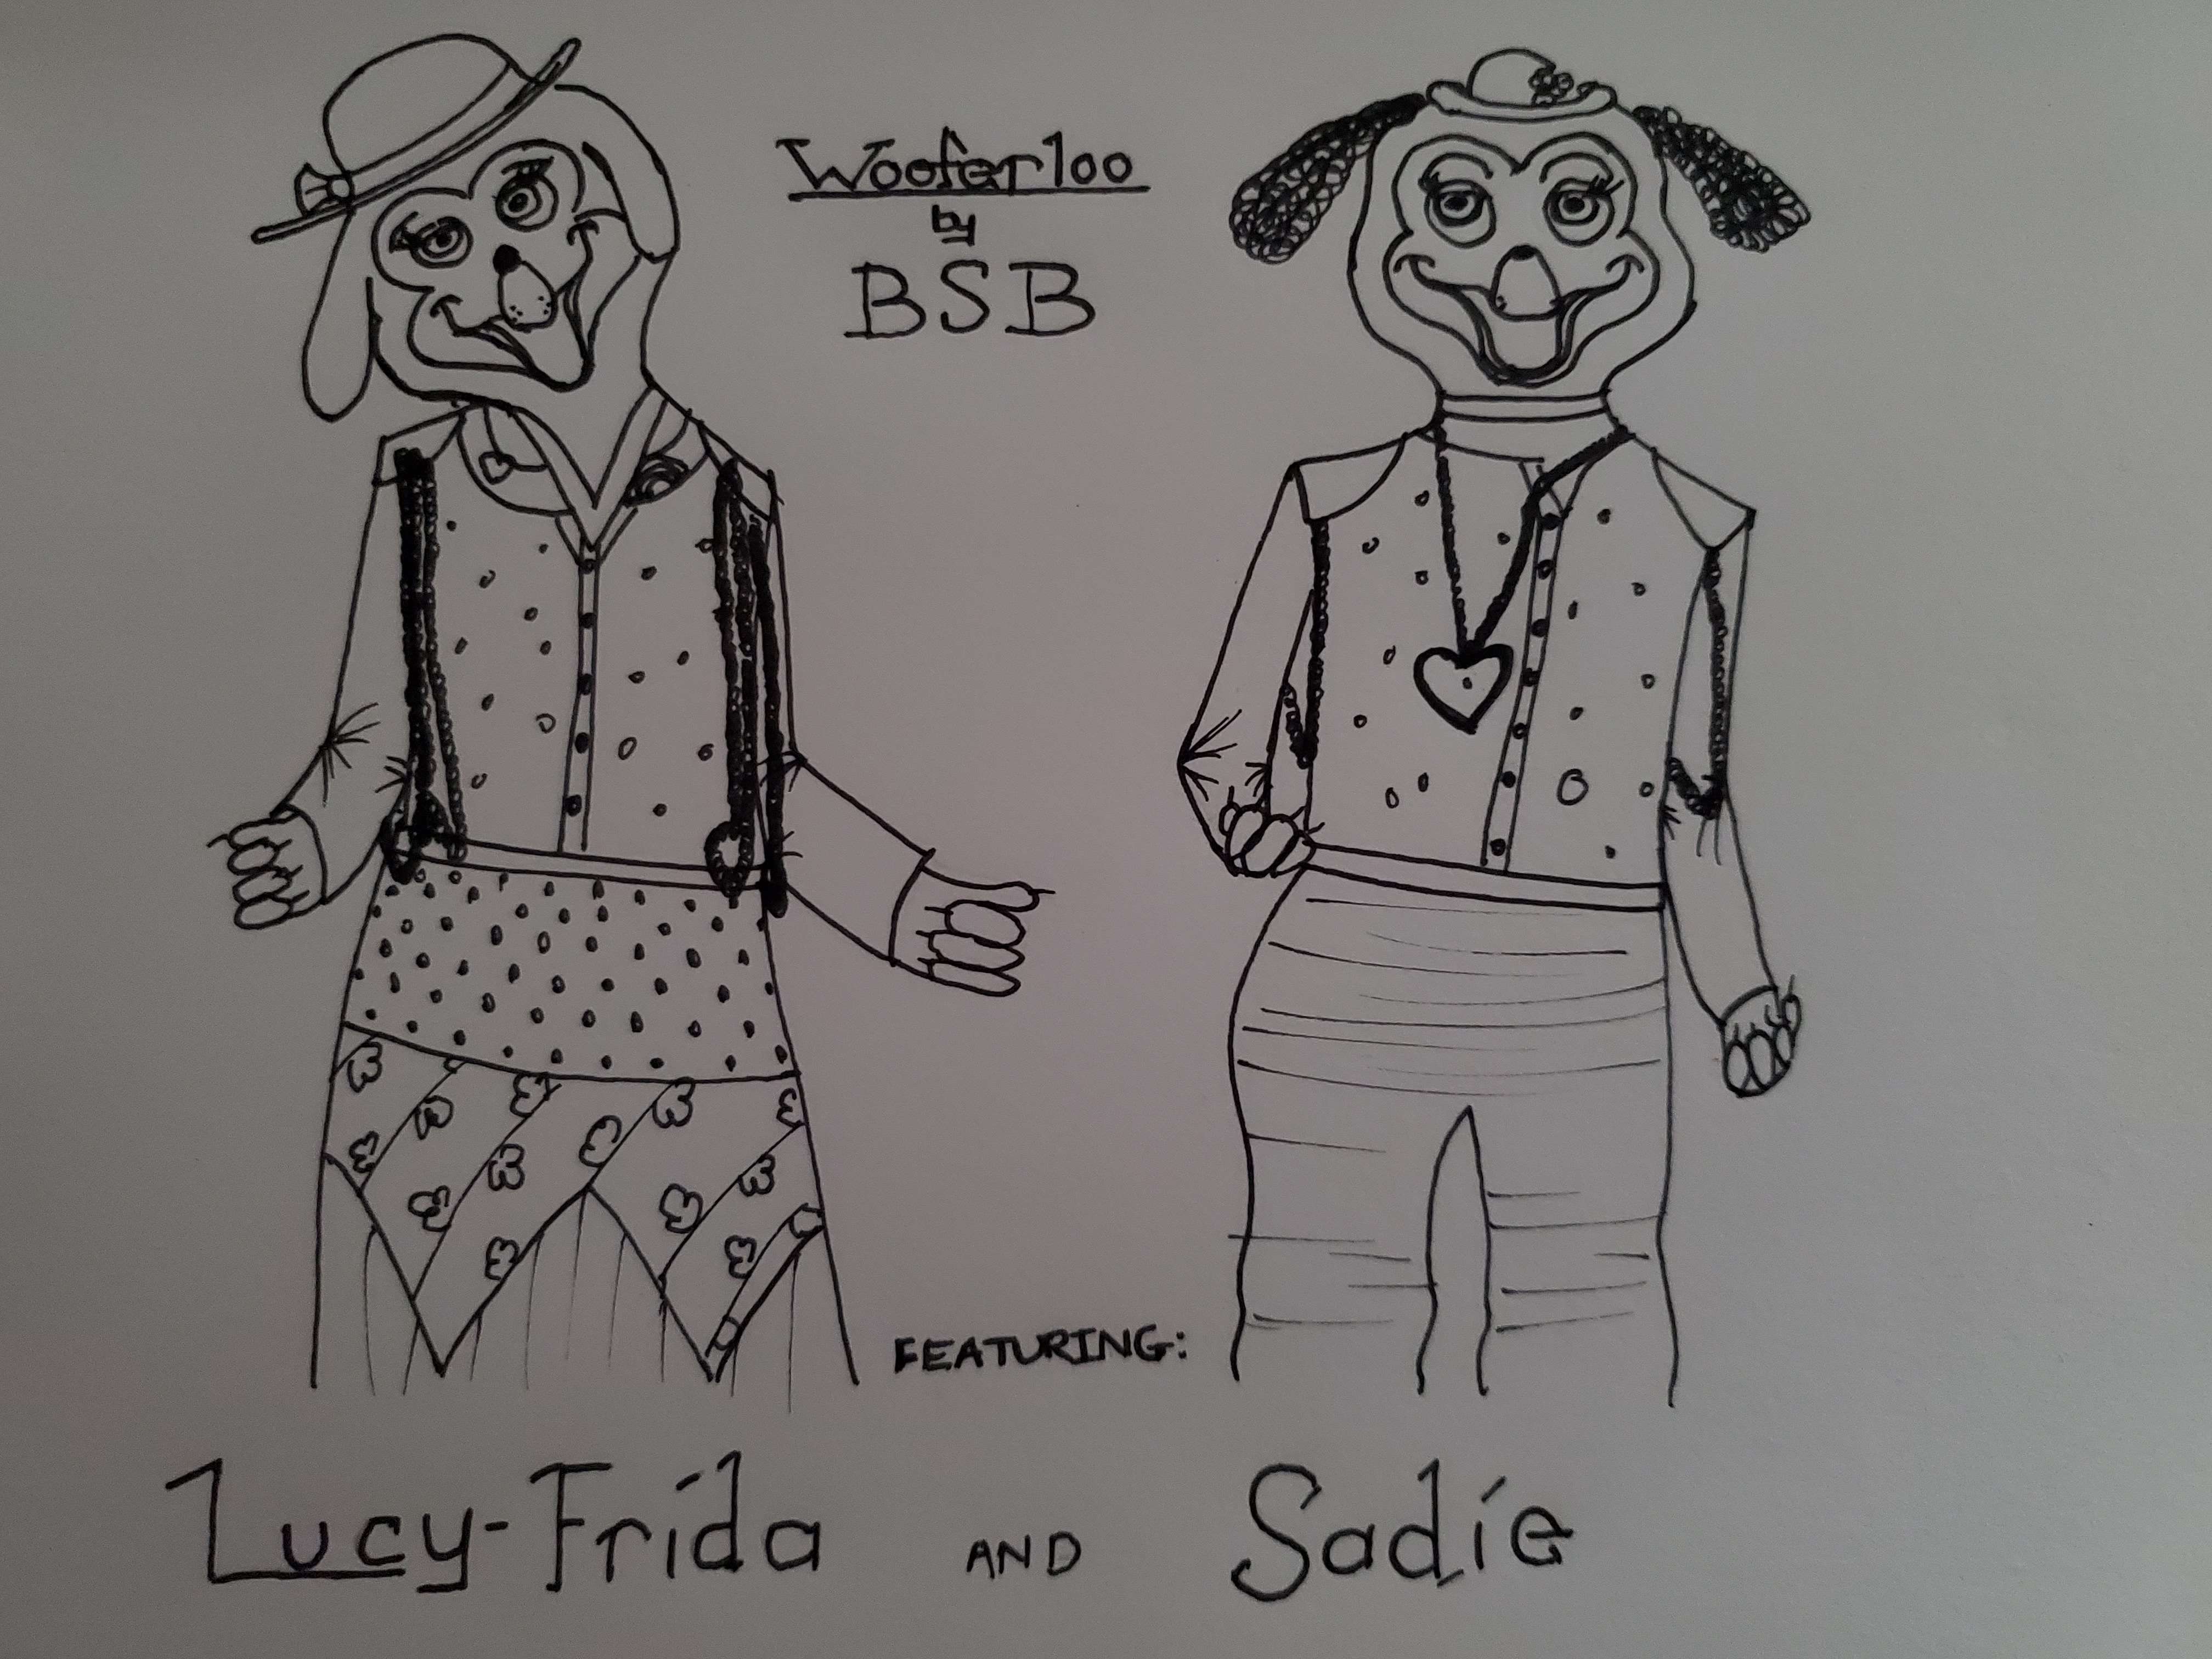 Wooferloo
by
BSB
FEATURING:
Lucy-Frida AND Sadie